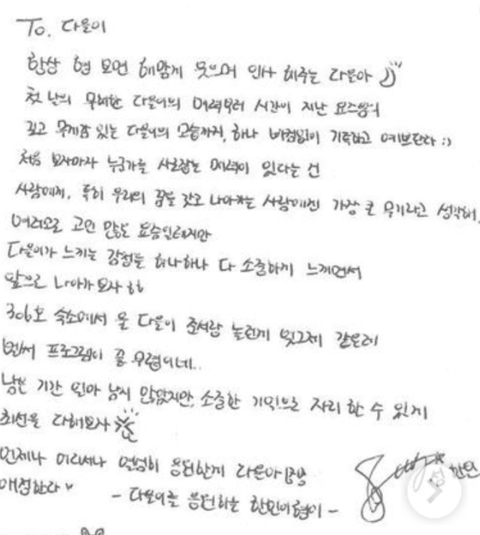 To. 다운이
항상 형 보면 해맑게 웃으며 인사 해주는 다운아
첫 날의 무해한 다운이의 매력부터 시간이 지난 요즘의
깊고 무게감 있는 다운이의 모습까지, 하나 빠짐없이 기특하고 예쁘단다 :)
처음 보자마자 누군가를 사로잡는 매력이 있다는 건
사람에게, 특히 우리의 꿈을 갖고 나아가는 사람에겐 가장 큰 무기라고 생각해.
여러모로 고민 많을 요즘일테지만
다운이가 느끼는 감정들 하나하나 다 소중하게 느끼면서
앞으로 나아가보자 ㅎㅎ
306호 숙소에서 울 다운이 준서랑 놀던게 엊그제 같은데
벌써 프로그램이 끝 무렵이네..
남은 기간 얼마 남지 않았지만, 소중한 기억으로 자리 할 수 있게
최선을 다해보자
언제나 어디서나 열렬히 응원할게 다운아
애정한다♥
- 다운이를 응원하는 한빈이형이 -